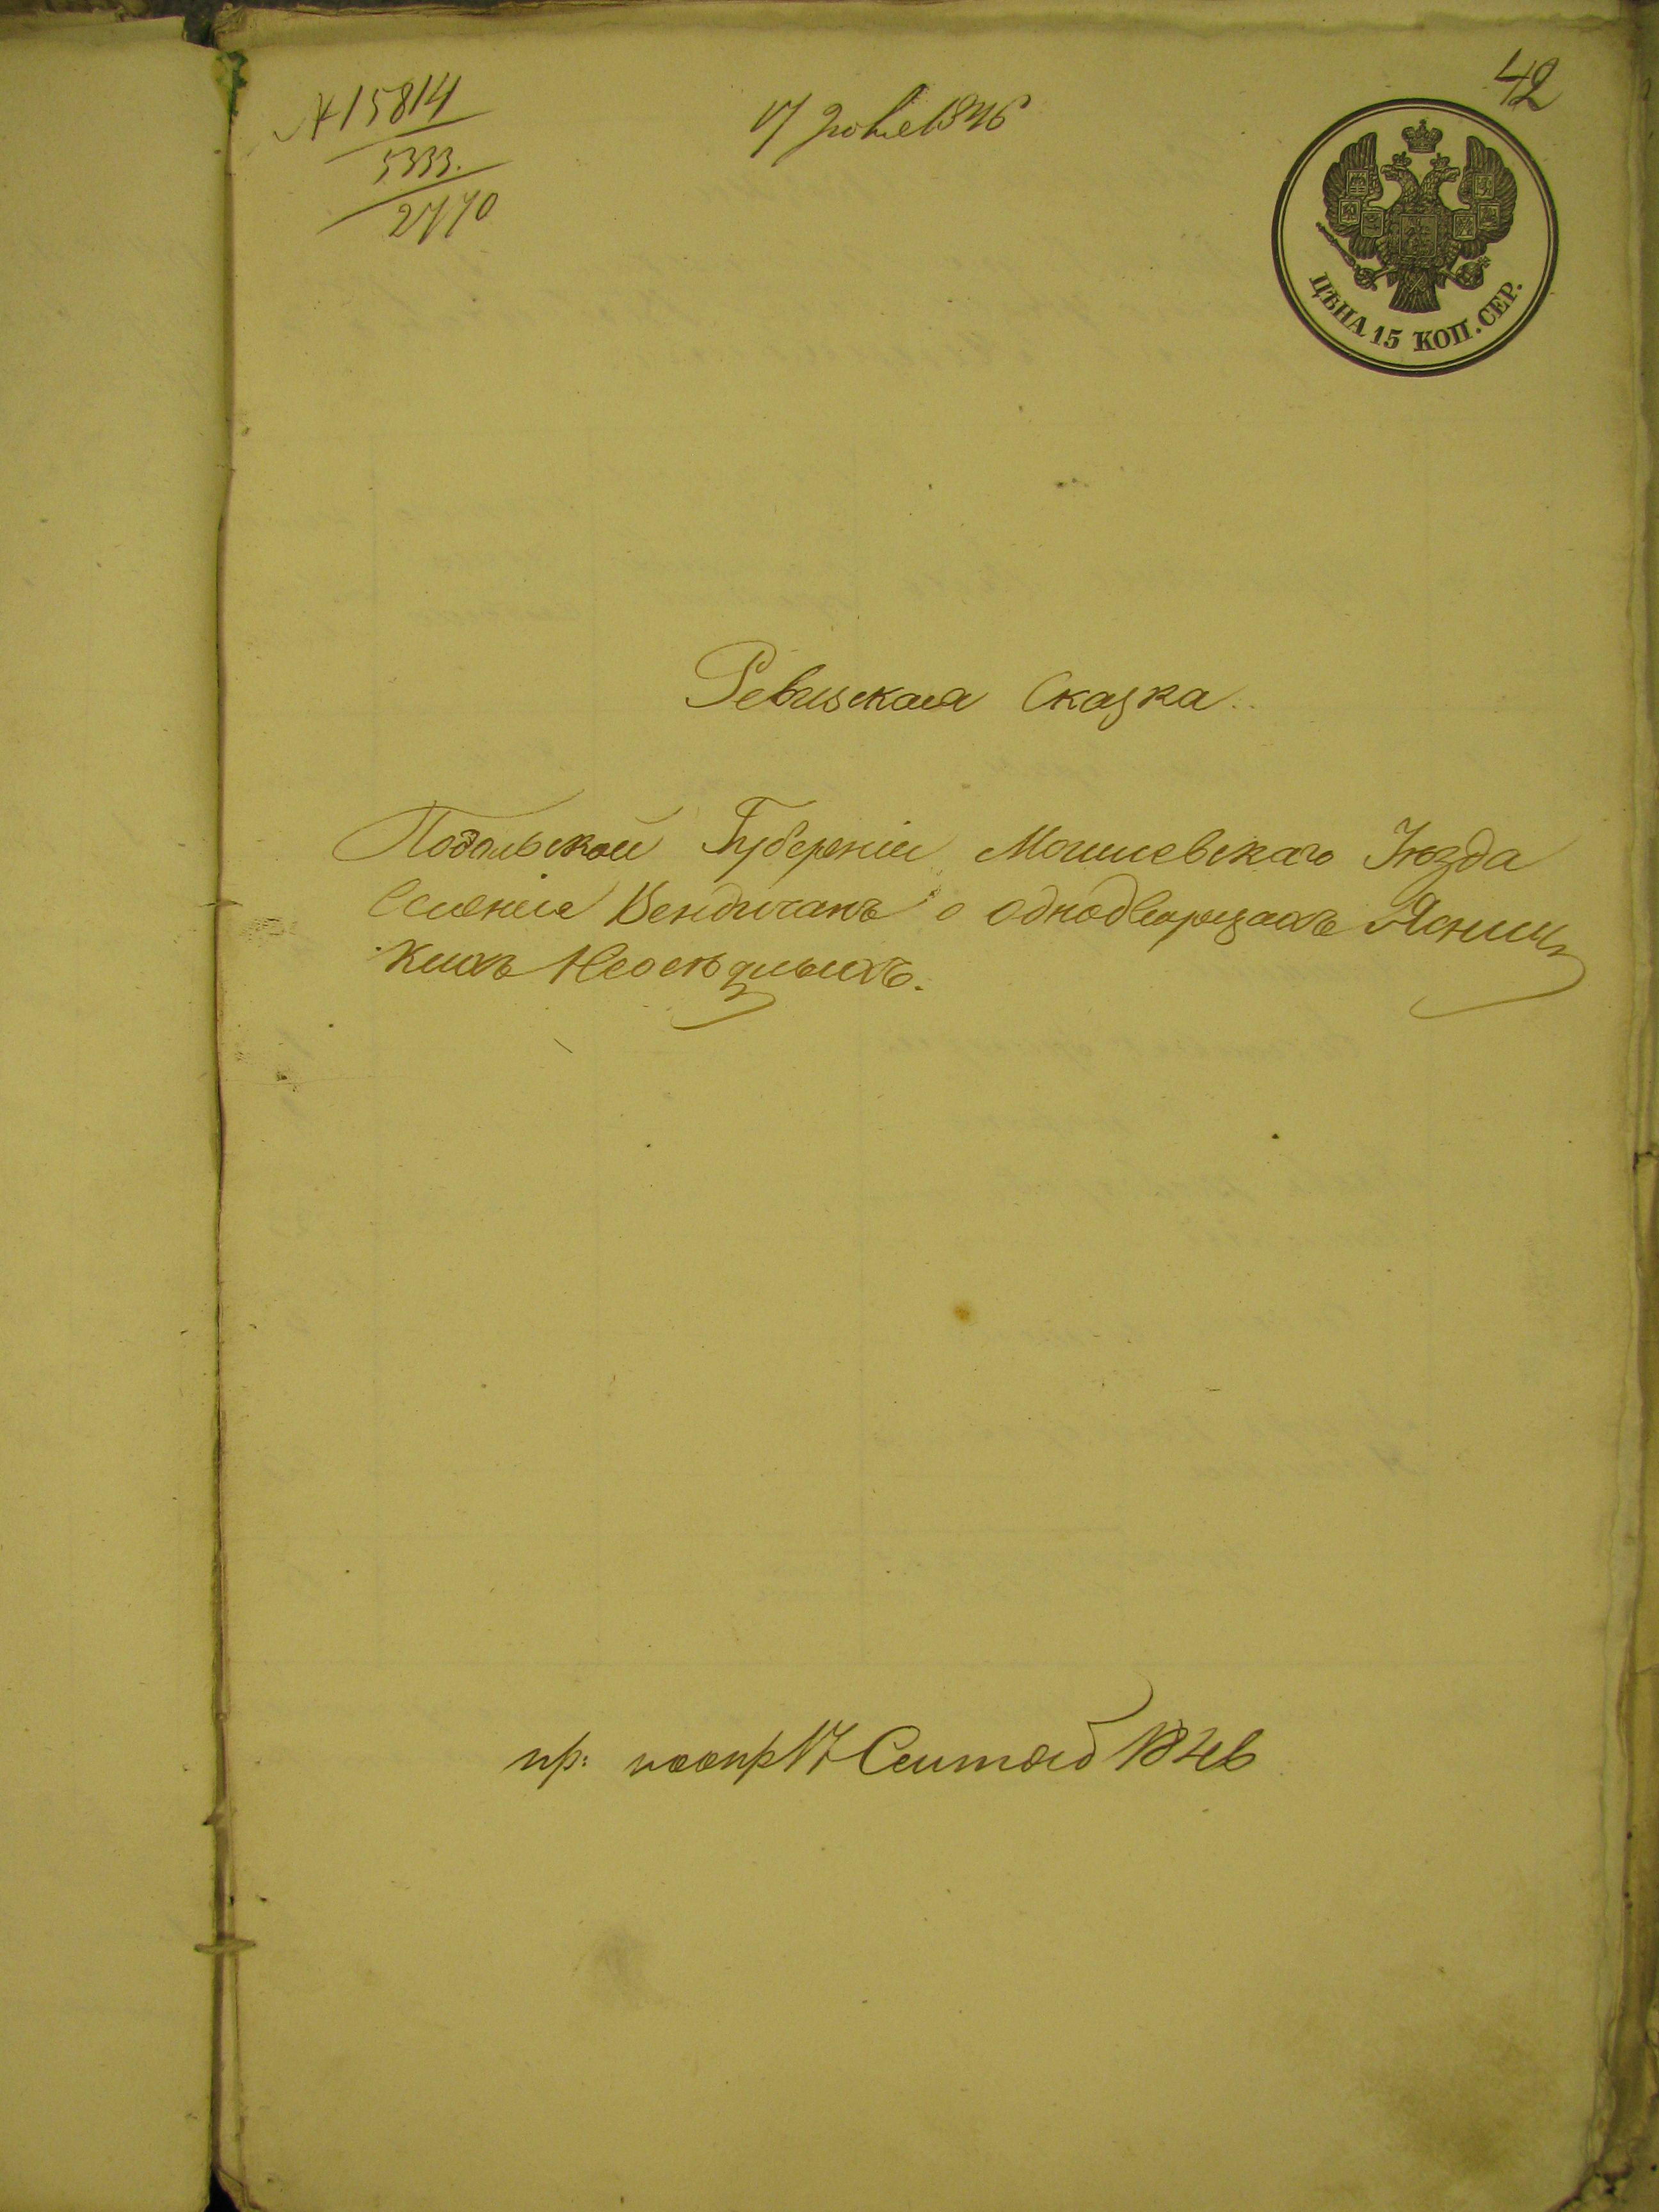 42
№ 15814
5333.
2770
17 1846
ЦѢНА 15 КОП. СЕР.
Ревизская Сказка
Подольской Губерніи Могилевскаго Уѣзда
Селенія Вендичанъ о однодворцахъ Ясинц
кихъ Неосѣдлыхъ.
пр: 17 Сентяб 1846